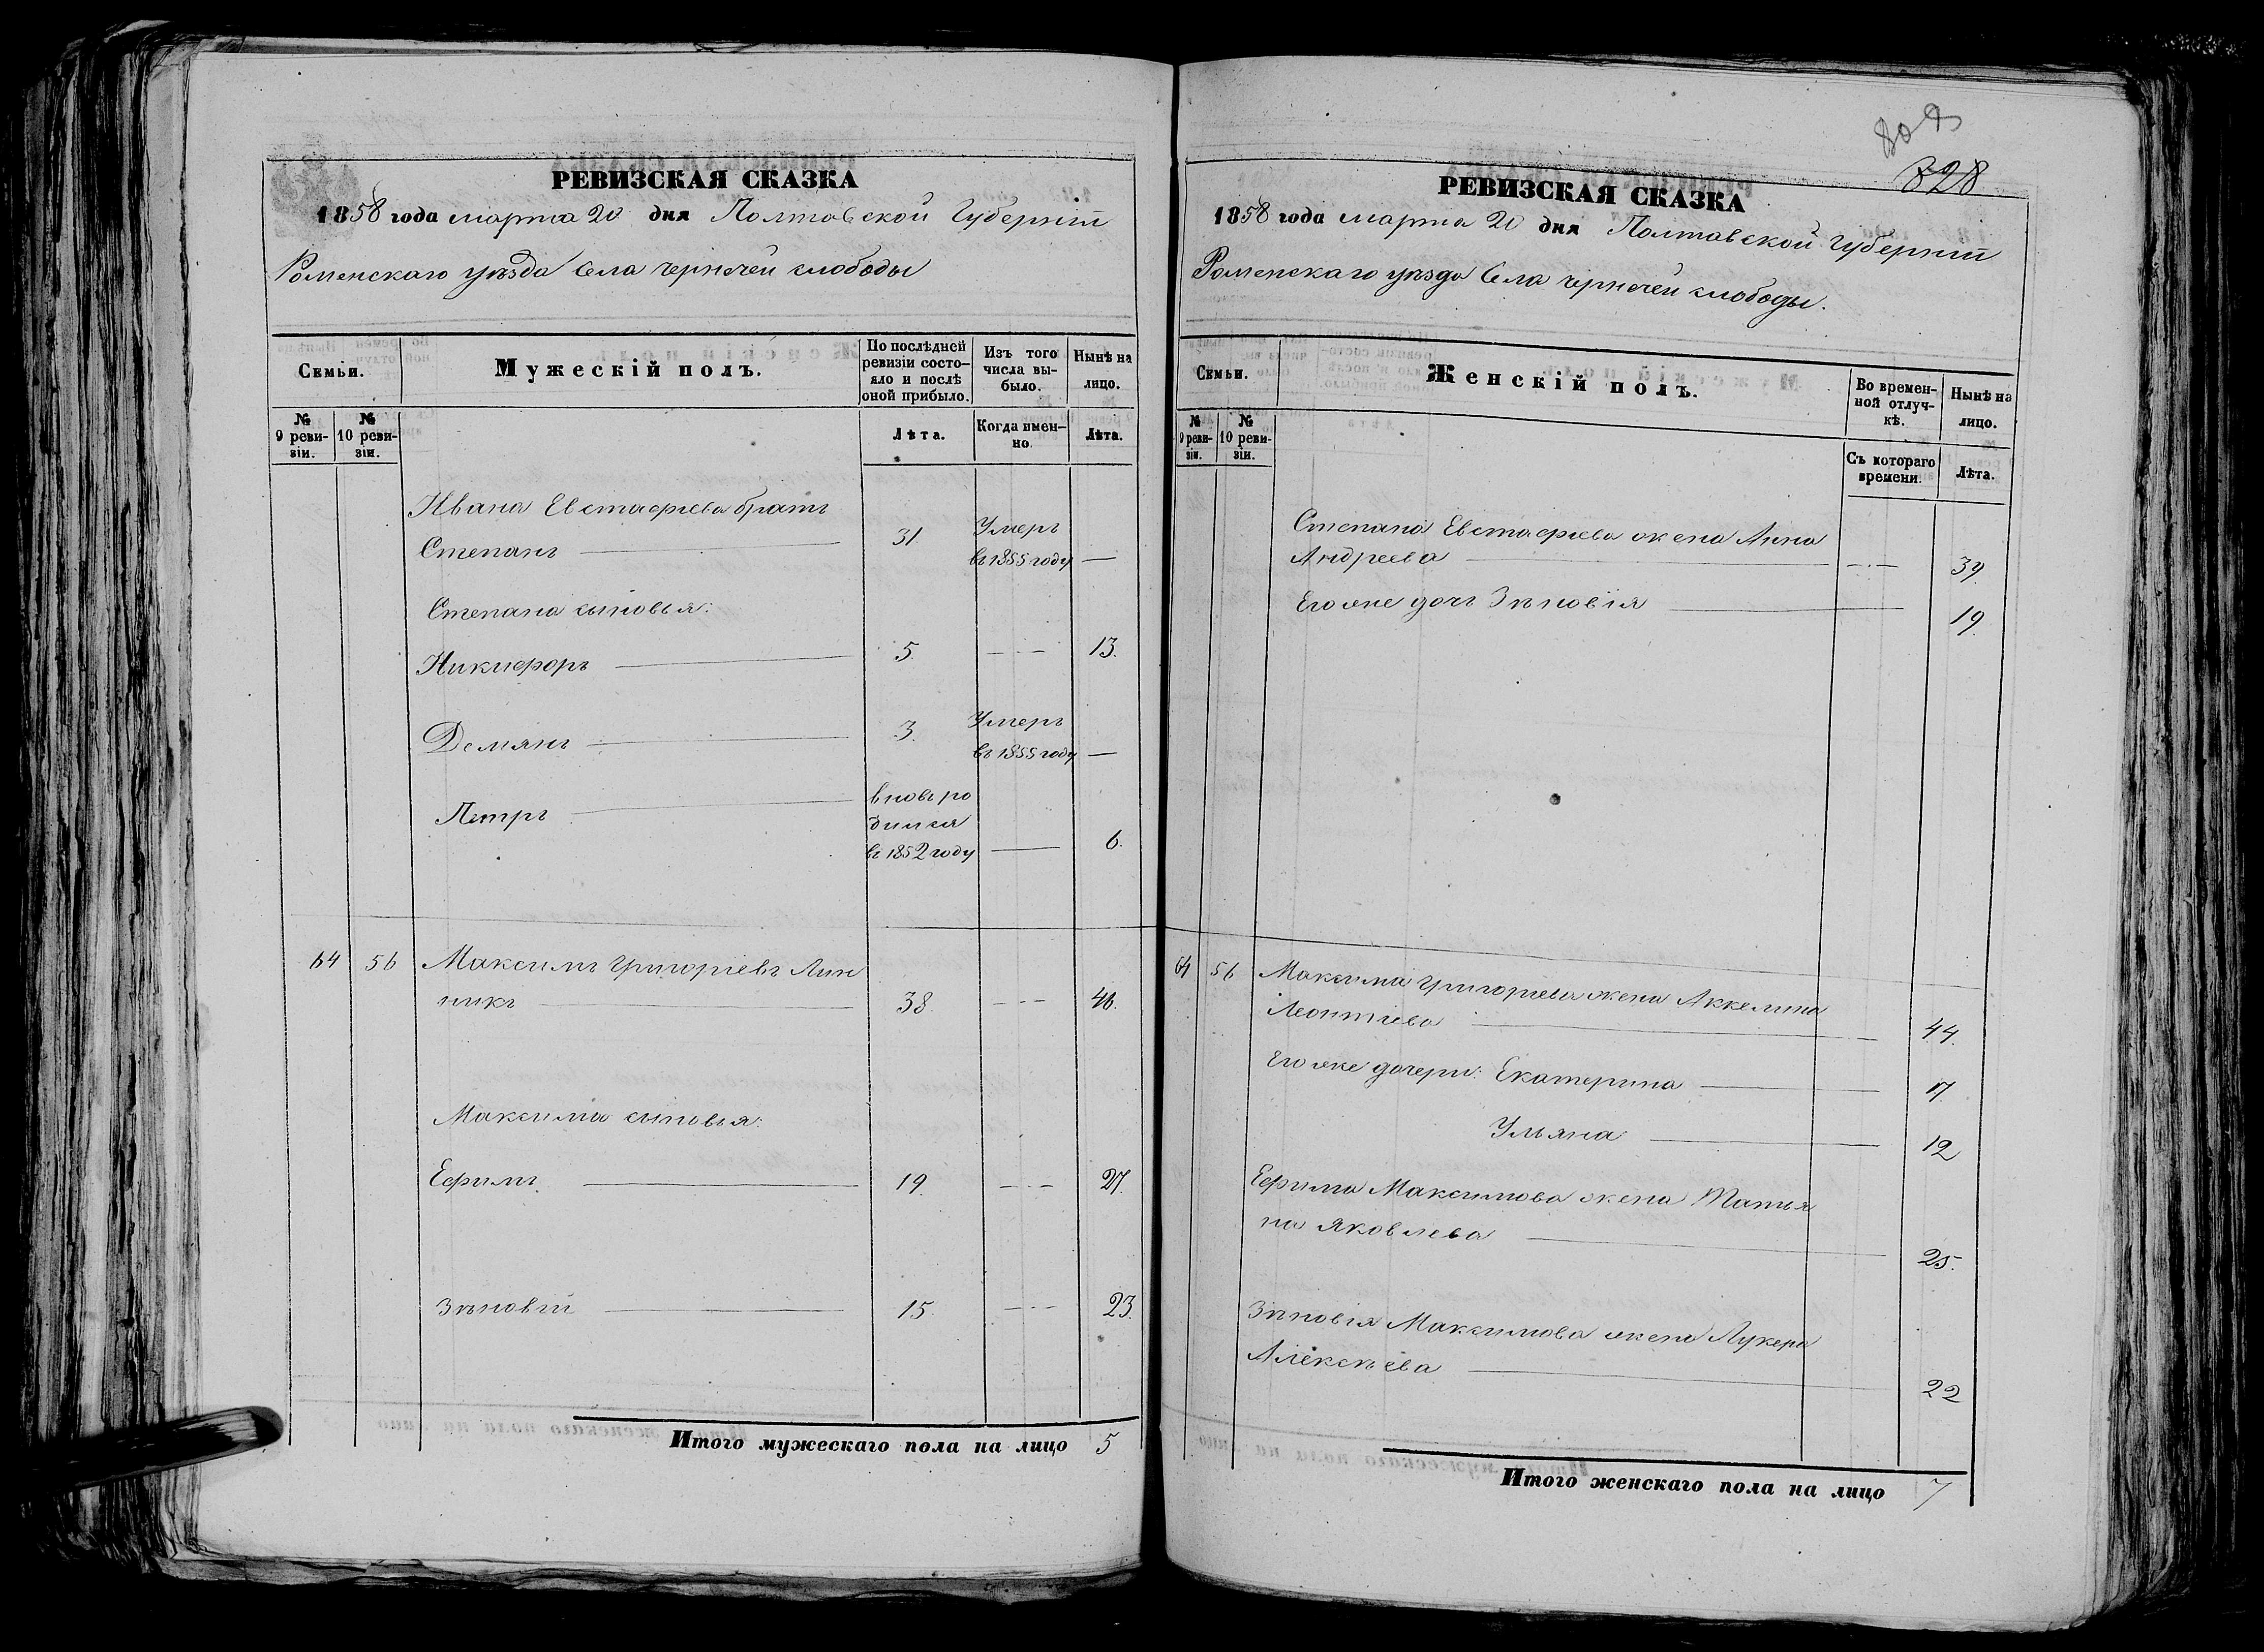 РЕВИЗСКАЯ СКАЗКА
1858 года марта 20 дня Полтавской Губерніи
Роменскаго уѣзда Села чернечей слободы
Семьи.
Мужескій полъ.
По послѣдней ревизіи состояло и послѣ оной прибыло.
Изъ того числа выбыло.
Нынѣ на лицо.
№ 9 ревизіи.
№ 10 ревизіи.
Лѣта.
Когда именно.
Лѣта.
Ивана Евстафіева братъ
Степанъ 31 Умеръ
въ 1855 году —
Степана сыновья:
Никифоръ 5. — 13.
Демянъ 3. Умеръ
въ 1855 году —
Петръ вновь ро
дился
въ 1852 году — 6.
64 56 Максимъ Григоріевъ Лин
никъ 38. — 46.
Максима сыновья:
Ефимъ 19. — 27.
Зѣновій 15. — 23.
Итого мужескаго пола на лицо 5
328
РЕВИЗСКАЯ СКАЗКА
1858 года марта 20 дня Полтавской Губерніи
Роменскаго уѣзда Села чернечей слободы.
Семьи.
Женскій полъ.
Во временной отлучкѣ.
Нынѣ на лицо.
№ 9 ревизіи.
№ 10 ревизіи.
Съ котораго времени.
Лѣта.
Степана Евстафіева жена Анна
Андреева — 39.
Его же дочь Зѣновія 19.
64 56 Максима Григоріева жена Аккелина
Леонтіева 44.
Его же дочери: Екатерина 17
Ульяна 12
Ефима Максимова жена Татья
на Яковлева 25.
Зѣновія Максимова жена Лукера
Алексѣева 22
Итого женскаго пола на лицо 7